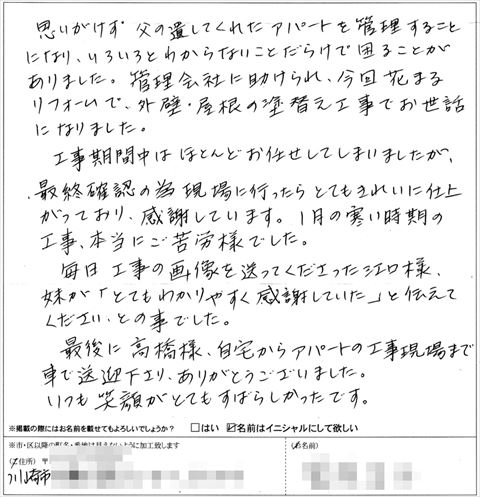 思いがけず 父の遺してくれたアパートを管理すること
になり、いろいろとわからないことだらけで困ることが
ありました。管理会社に助けられ、今回 花まる
リフォームで、外壁・屋根の塗替え工事でお世話
になりました。
工事期間中は ほとんどお任せしてしまいましたが、
最終確認の為 現場に行ったら とてもきれいに仕上
がっており、感謝しています。1月の寒い時期の
工事、本当にご苦労様でした。
毎日 工事の画像を送ってくださった江口様、
妹が「とてもわかりやすく感謝していた」と伝えて
ください、との事でした。
最後に 高橋様、自宅からアパートの工事現場まで
車で送迎下さり、ありがとうございました。
いつも 笑顔がとてもすばらしかったです。
※掲載の際にはお名前を載せてもよろしいでしょうか? □はい ☑名前はイニシャルにして欲しい
※市・区以降の町名・番地は見えないように加工致します
(ご住所) 〒
(お名前)
川崎市